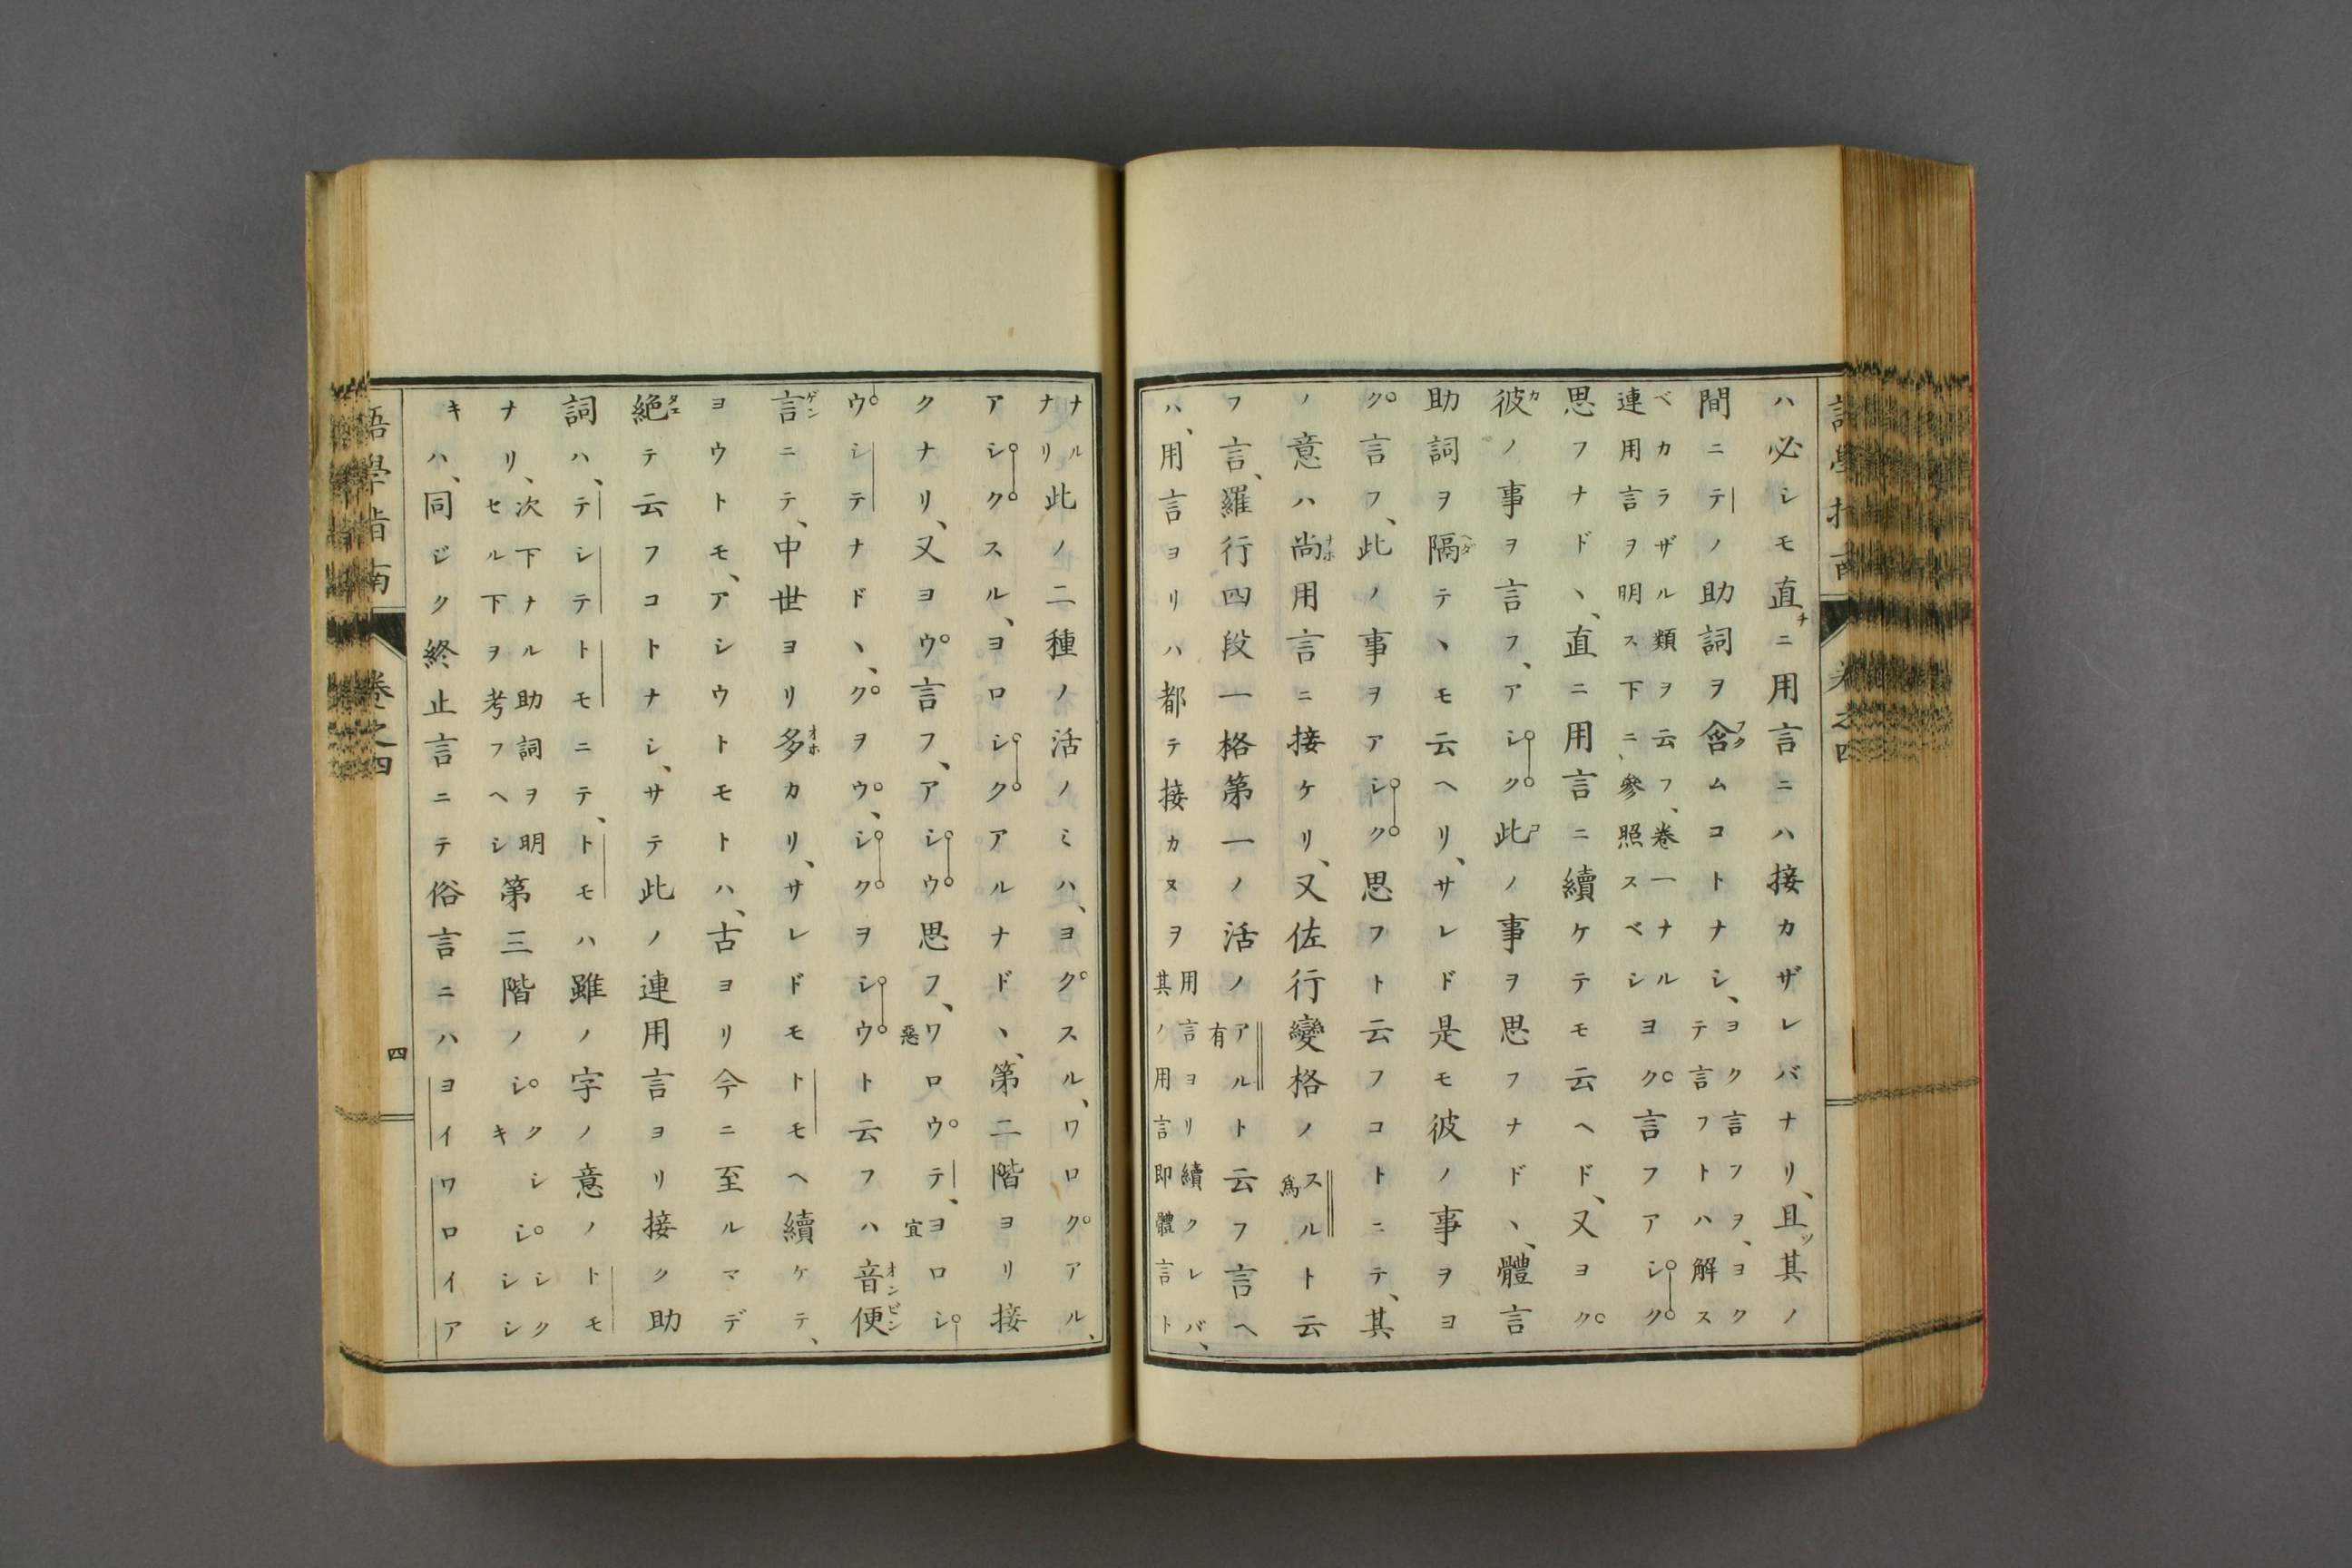 ハ必シモ直チニ用言ニハ接カザレバナリ、且ツ其ノ
間ニテノ助詞ヲ含フクムコトナシ、ヨク言フヲ、ヨク
テ言フトハ解ス
ベカラザル類ヲ云フ、卷一ナル
連用言ヲ明ス下ニ、參照スベシヨク言フアシク
思フナドヽ、直ニ用言ニ續ケテモ云ヘド、又ヨク
彼カノ事ヲ言フ、アシク此コノ事ヲ思フナドヽ、體言
助詞ヲ隔ヘダテヽモ云ヘリ、サレド是モ彼ノ事ヲヨ
ク言フ、此ノ事ヲアシク思フト云フコトニテ、其
ノ意ハ尚ナホ用言ニ接ケリ、又佐行變格ノスル爲ト云
フ言、羅行四段一格第一ノ活ノアル有ト云フ言ヘ
ハ、用言ヨリハ都テ接カヌヲ用言ヨリ續クレバ、
其ノ用言即體言ト
ナル
ナリ此ノ二種ノ活ノミハ、ヨクスル、ワロクアル、
アシクスル、ヨロシクアルナドヽ、第二階ヨリ接
クナリ、又ヨウ言フ、アシウ思フ、ワロウテ、惡ヨロシ宜
ウシテナドヽ、クヲウ、シクヲシウト云フハ音便オンビン
言ゲンニテ、中世ヨリ多オホカリ、サレドモトモヘ續ケテ、
ヨウトモ、アシウトモトハ、古ヨリ今ニ至ルマデ
絶タエテ云フコトナシ、サテ此ノ連用言ヨリ接ク助
詞ハ、テシテトモニテ、トモハ雖ノ字ノ意ノトモ
ナリ、次下ナル助詞ヲ明
セル下ヲ考フヘシ第三階ノシクシシク
キシシシ
キハ、同ジク終止言ニテ俗言ニハヨイワロイア
語學指南 卷之四
四